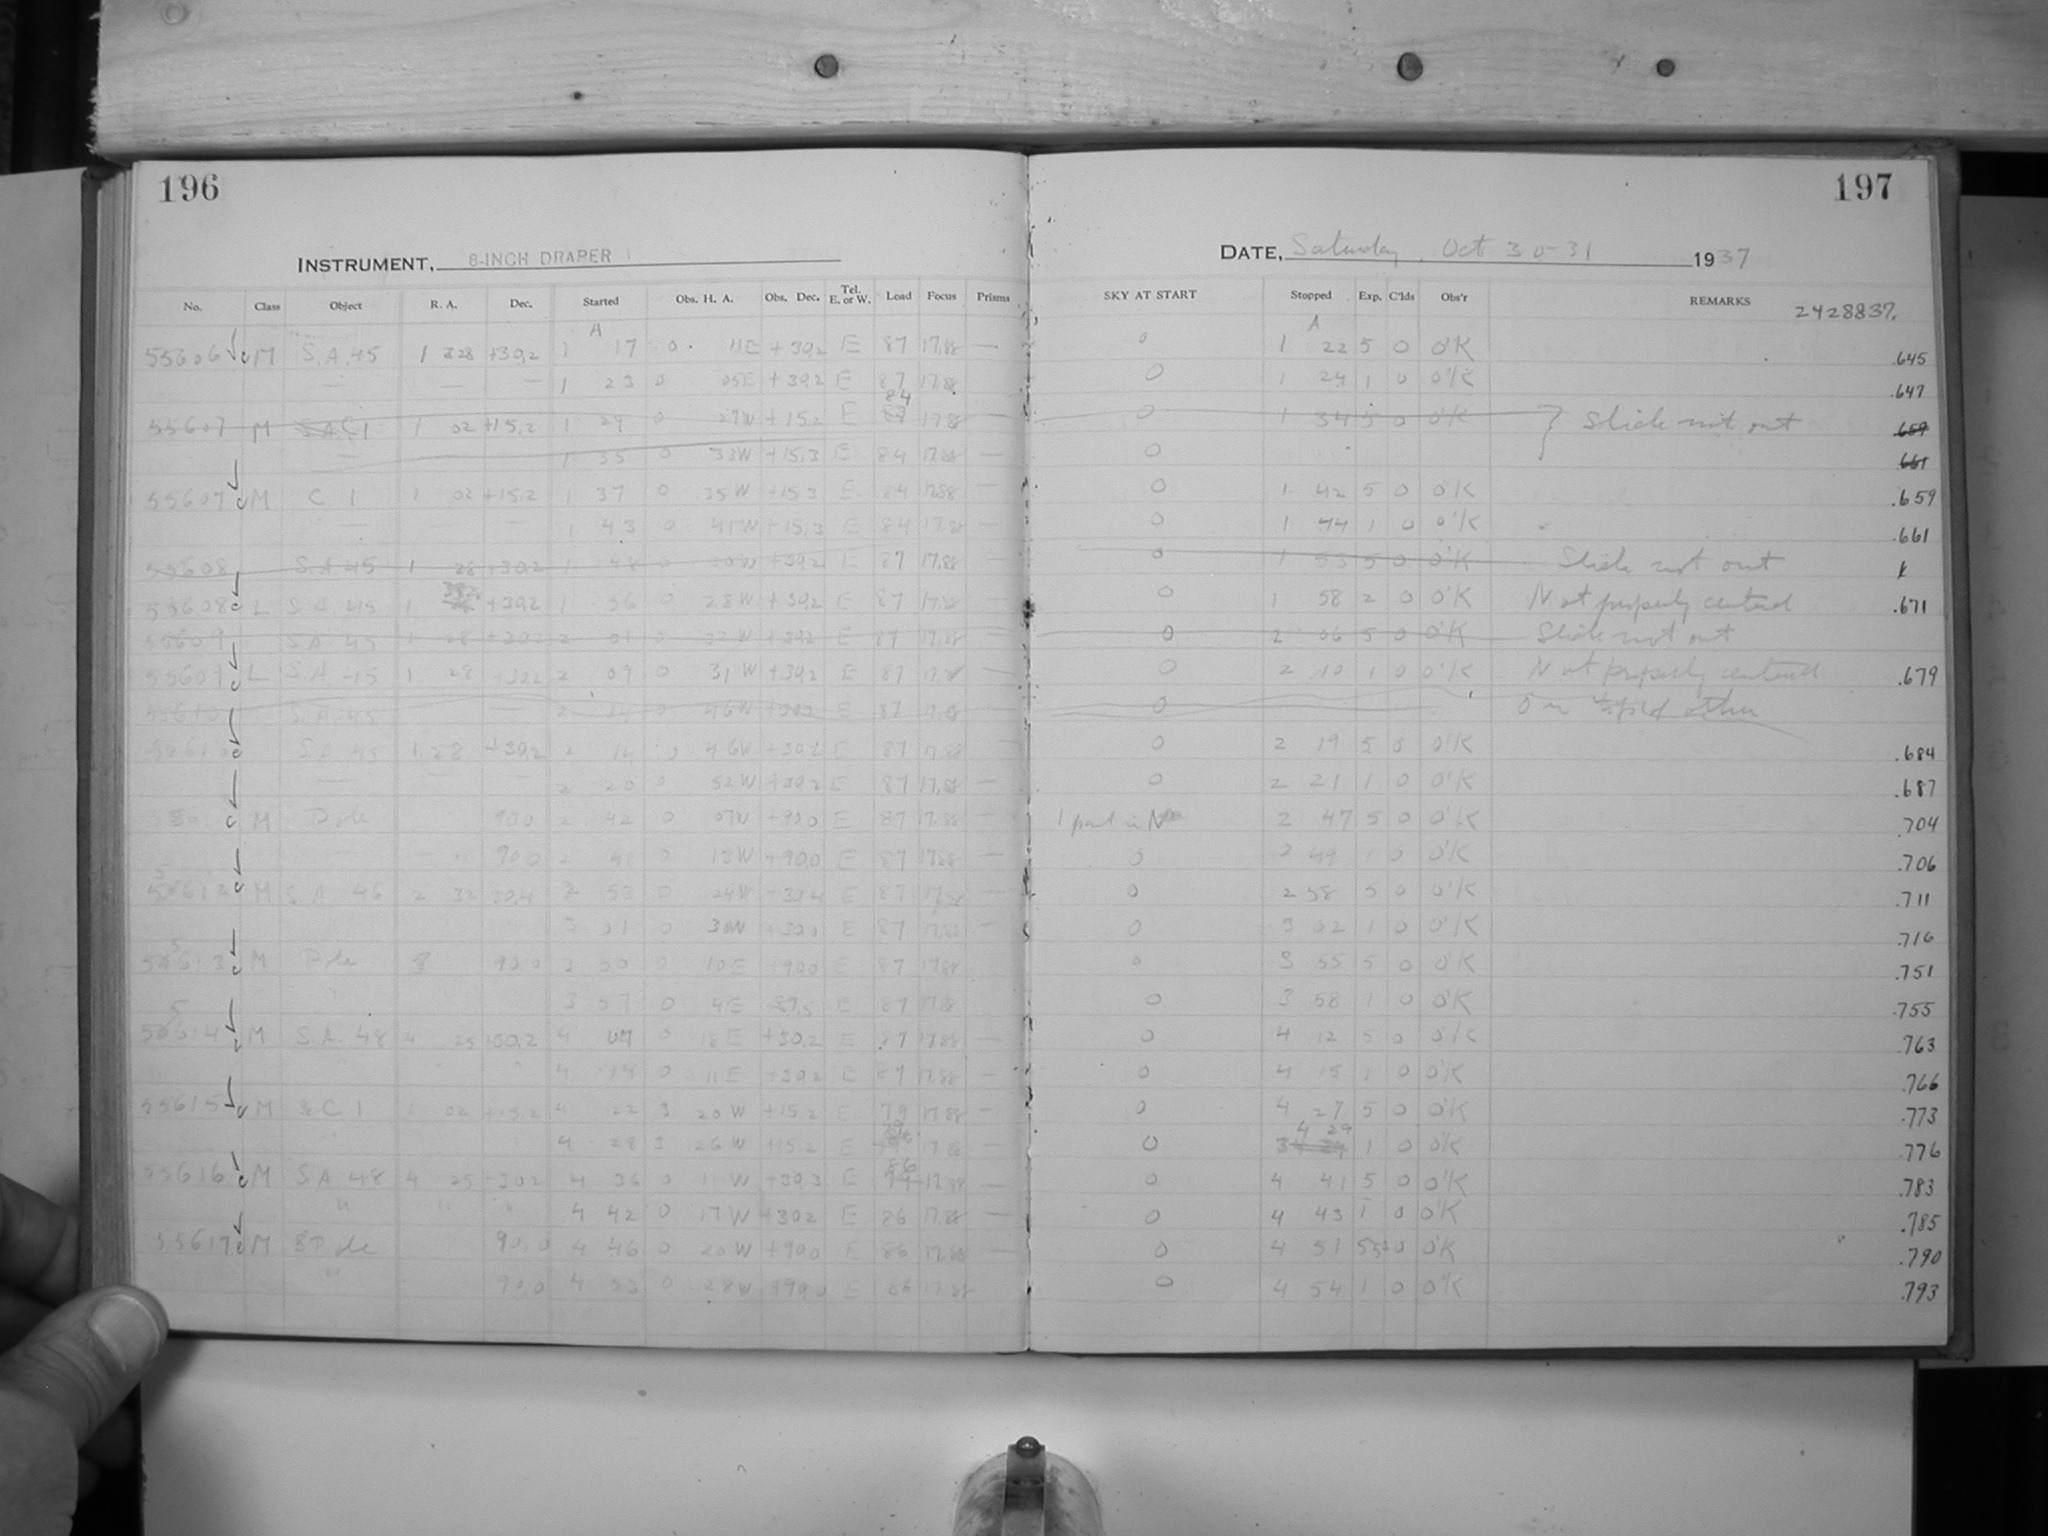 196
197
INSTRUMENT, 8-INCH DRAPER
DATE, Saturday, Oct 30-31 1937
No. Class Object R. A. Dec. Started Obs. H. A. Obs. Dec. Tel. E. or W. Load Focus Prisms SKY AT START Stopped Exp. C'lds Obs'r REMARKS
2428837.
A A
55606 M S.A. 45 1 28 +30,2 1 17 0 11E +30,2 E 87 17,88 — 0 1 22 5 0 O'K .645
— — — 1 23 0 05E +30,2 E 87 17,88 0 1 24 1 0 O'K .647
55607 M C 1 1 02 +15,2 1 29 0 27W +15,2 E 84 17,88 — 0 1 34 5 0 O'K } Slide not out .659
1 35 0 33W +15,3 E 84 17,88 — 0 .661
55607 M C 1 1 02 +15,2 1 37 0 35W +15,3 E 84 17,88 — 0 1 42 5 0 O'K .659
1 43 0 41W +15,3 E 84 17,88 — 0 1 44 1 0 O'K .661
55608 S.A. 45 1 28 +30,2 1 48 0 +30,2 E 87 17,88 0 1 53 5 0 O'K Slide not out
55608 L S.A. 45 1 +30,2 1 56 0 28W +30,2 E 87 17,88 0 1 58 2 0 O'K Not properly centered .671
55609 S.A. 45 1 28 +30,2 2 01 0 +30,2 E 87 17,88 0 2 06 5 0 O'K Slide not out
55609 L S.A. 45 1 28 +30,2 2 09 0 31W +30,2 E 87 17,88 — 0 2 10 1 0 O'K Not properly centered .679
55610 S.A. 45 — 2 14 0 46W +30,2 E 87 17,88 0
55610 S.A. 45 1 28 +30,2 2 14 0 46W +30,2 E 87 17,88 0 2 19 5 0 O'K .684
— — 2 20 0 52W +30,2 E 87 17,88 — 0 2 21 1 0 O'K .687
M Pole 90,0 2 42 0 07W +90,0 E 87 17,88 — 1 part in N 2 47 5 0 O'K .704
90,0 2 48 0 13W +90,0 E 87 17,88 — 0 2 49 1 0 O'K .706
55612 M S.A. 46 2 32 30,4 2 53 0 24W +30,4 E 87 17,88 — 0 2 58 5 0 O'K .711
3 01 0 30W E 87 17,88 — 0 3 02 1 0 O'K .716
55613 M Pole 90,0 3 50 0 10E +90,0 E 87 17,88 — 0 3 55 5 0 O'K .751
3 57 0 4E E 87 17,88 0 3 58 1 0 O'K .755
55614 M S.A. 48 4 25 +30,2 4 07 0 18E +30,2 E 87 17,88 — 0 4 12 5 0 O'K .763
4 14 0 11E +30,2 E 87 17,88 — 0 4 15 1 0 O'K .766
55615 M C 1 1 02 +15,2 4 22 3 20W +15,2 E 79 17,88 — 0 4 27 5 0 O'K .773
4 28 3 26W +15,2 E 79 17,88 — 0 4 29 1 0 O'K .776
55616 M S.A. 48 4 25 +30,2 4 36 0 11W +30,3 E 86 17,88 — 0 4 41 5 0 O'K .783
" " " 4 42 0 17W +30,2 E 86 17,88 — 0 4 43 1 0 O'K .785
55617 M Pole 90,0 4 46 0 20W +90,0 E 86 17,88 — 0 4 51 5 0 O'K .790
" 90,0 4 53 0 28W +90,0 E 86 17,88 — 0 4 54 1 0 O'K .793